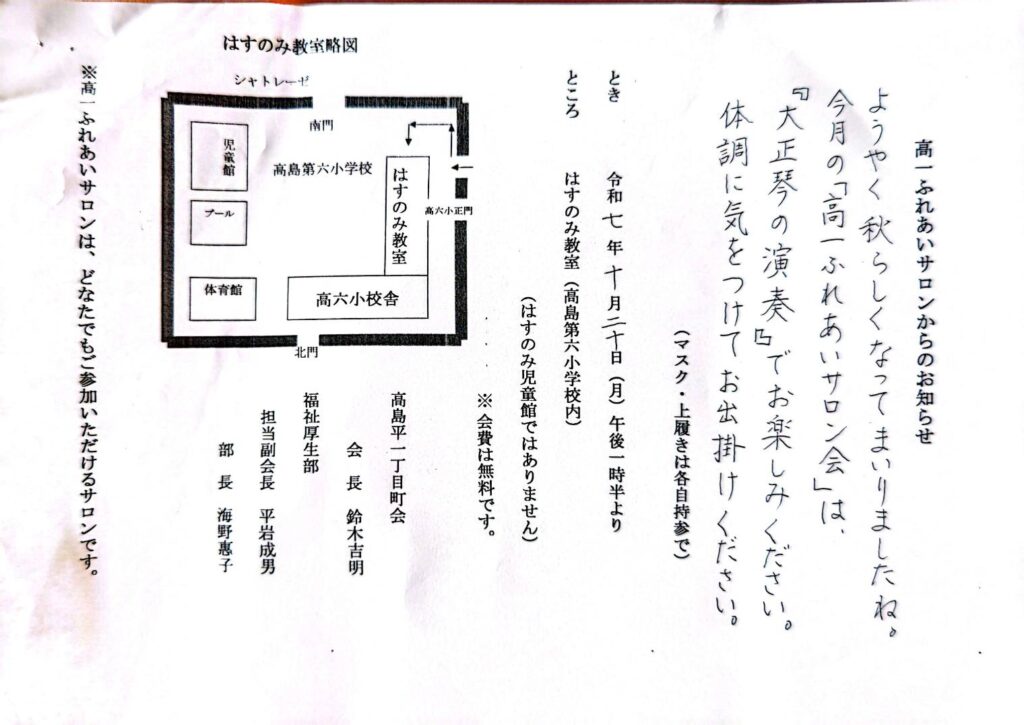 高一ふれあいサロンからのお知らせ
ようやく秋らしくなってまいりましたね。
今月の「高一ふれあいサロン会」は、
『大正琴の演奏』でお楽しみください。
体調に気をつけてお出掛けください。
(マスク・上履きは各自持参で)
とき 令和七年十月二十日(月)午後一時半より
ところ はすのみ教室(高島第六小学校内)
(はすのみ児童館ではありません)
※会費は無料です。
高島平一丁目町会
会長 鈴木吉明
福祉厚生部
担当副会長 平岩成男
部長 海野惠子
はすのみ教室略図
シャトレーゼ
南門
児童館
高島第六小学校
はすのみ教室
高六小正門
プール
体育館
高六小校舎
北門
※高一ふれあいサロンは、どなたでもご参加いただけるサロンです。